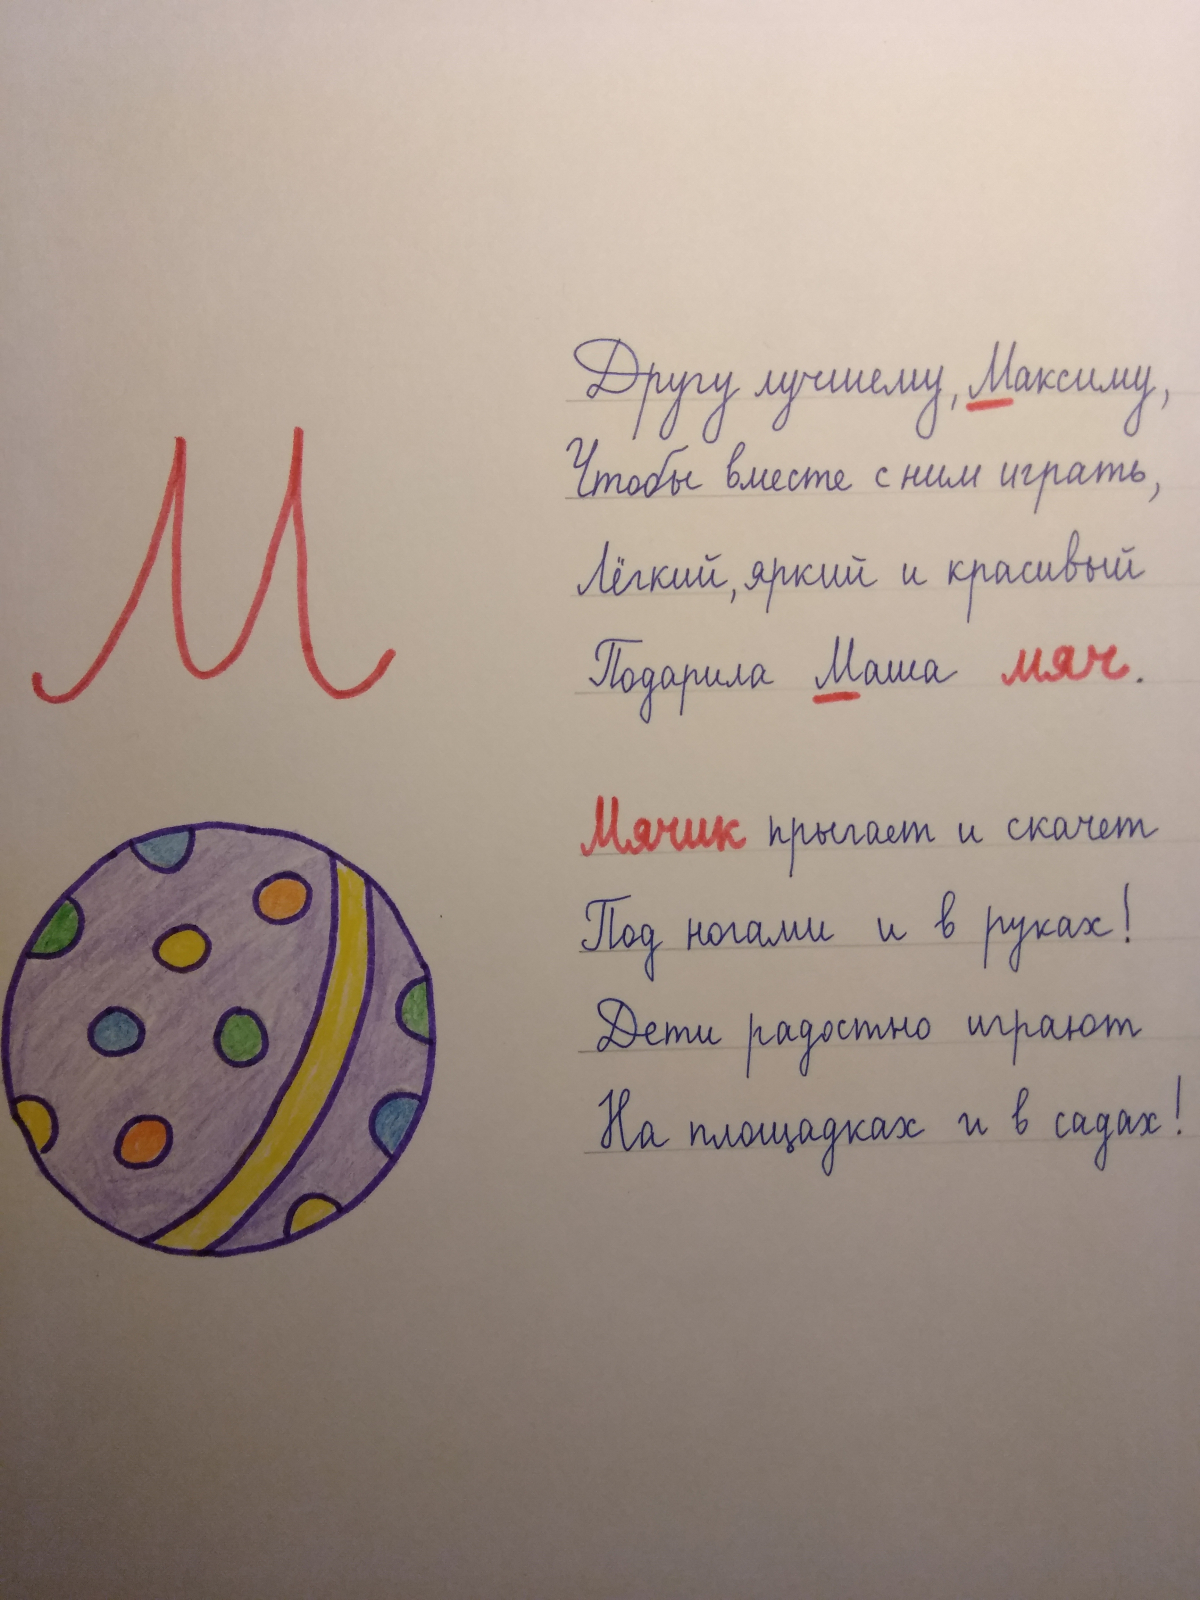 М
Другу лучшему, Максиму,
Чтобы вместе с ним играть,
Лёгкий, яркий и красивый
Подарила Маша мяч.
Мячик прыгает и скачет
Под ногами и в руках!
Дети радостно играют
На площадках и в садах!